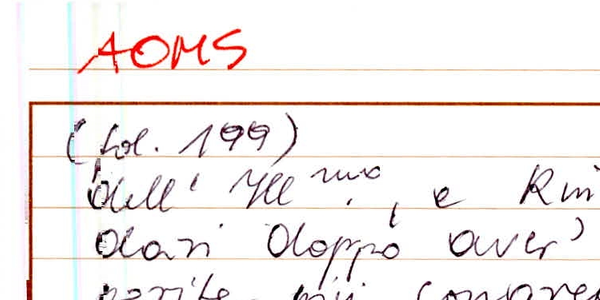 AOMS
(fol. 199)
dell' Ill.mo, e Rm
dari doppo aver'
più